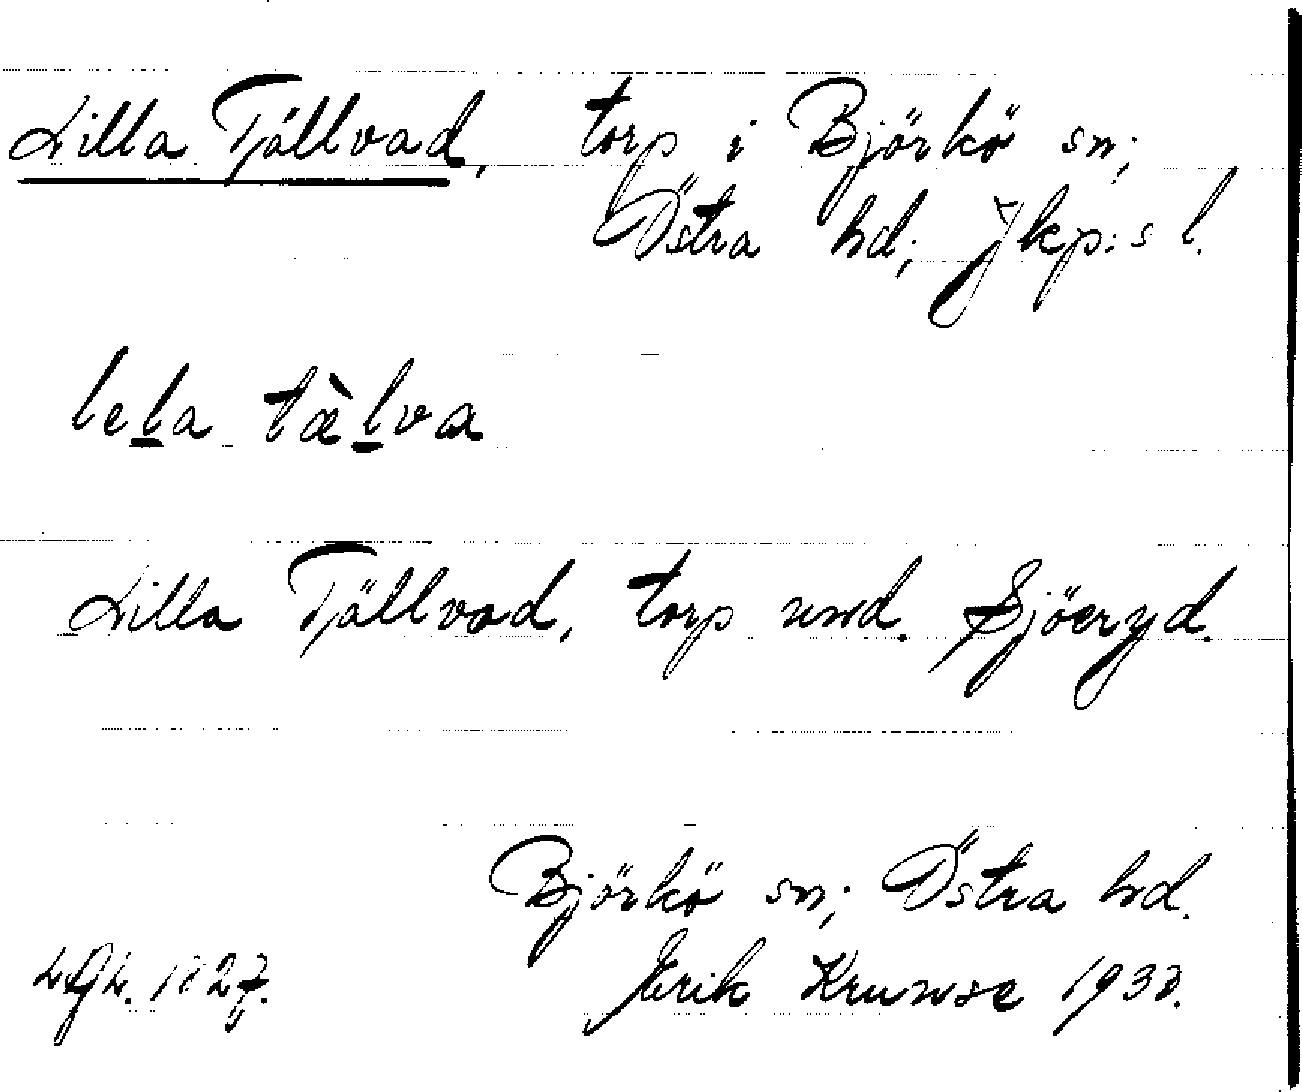 Lilla Tjällvad, torp i Björkö sn;
Östra hd; Jkp:s l.
lela tàlva
Lilla Tjällvad, torp und. Sjöeryd.
Björkö sn; Östra hd.
Erik Krunse 193